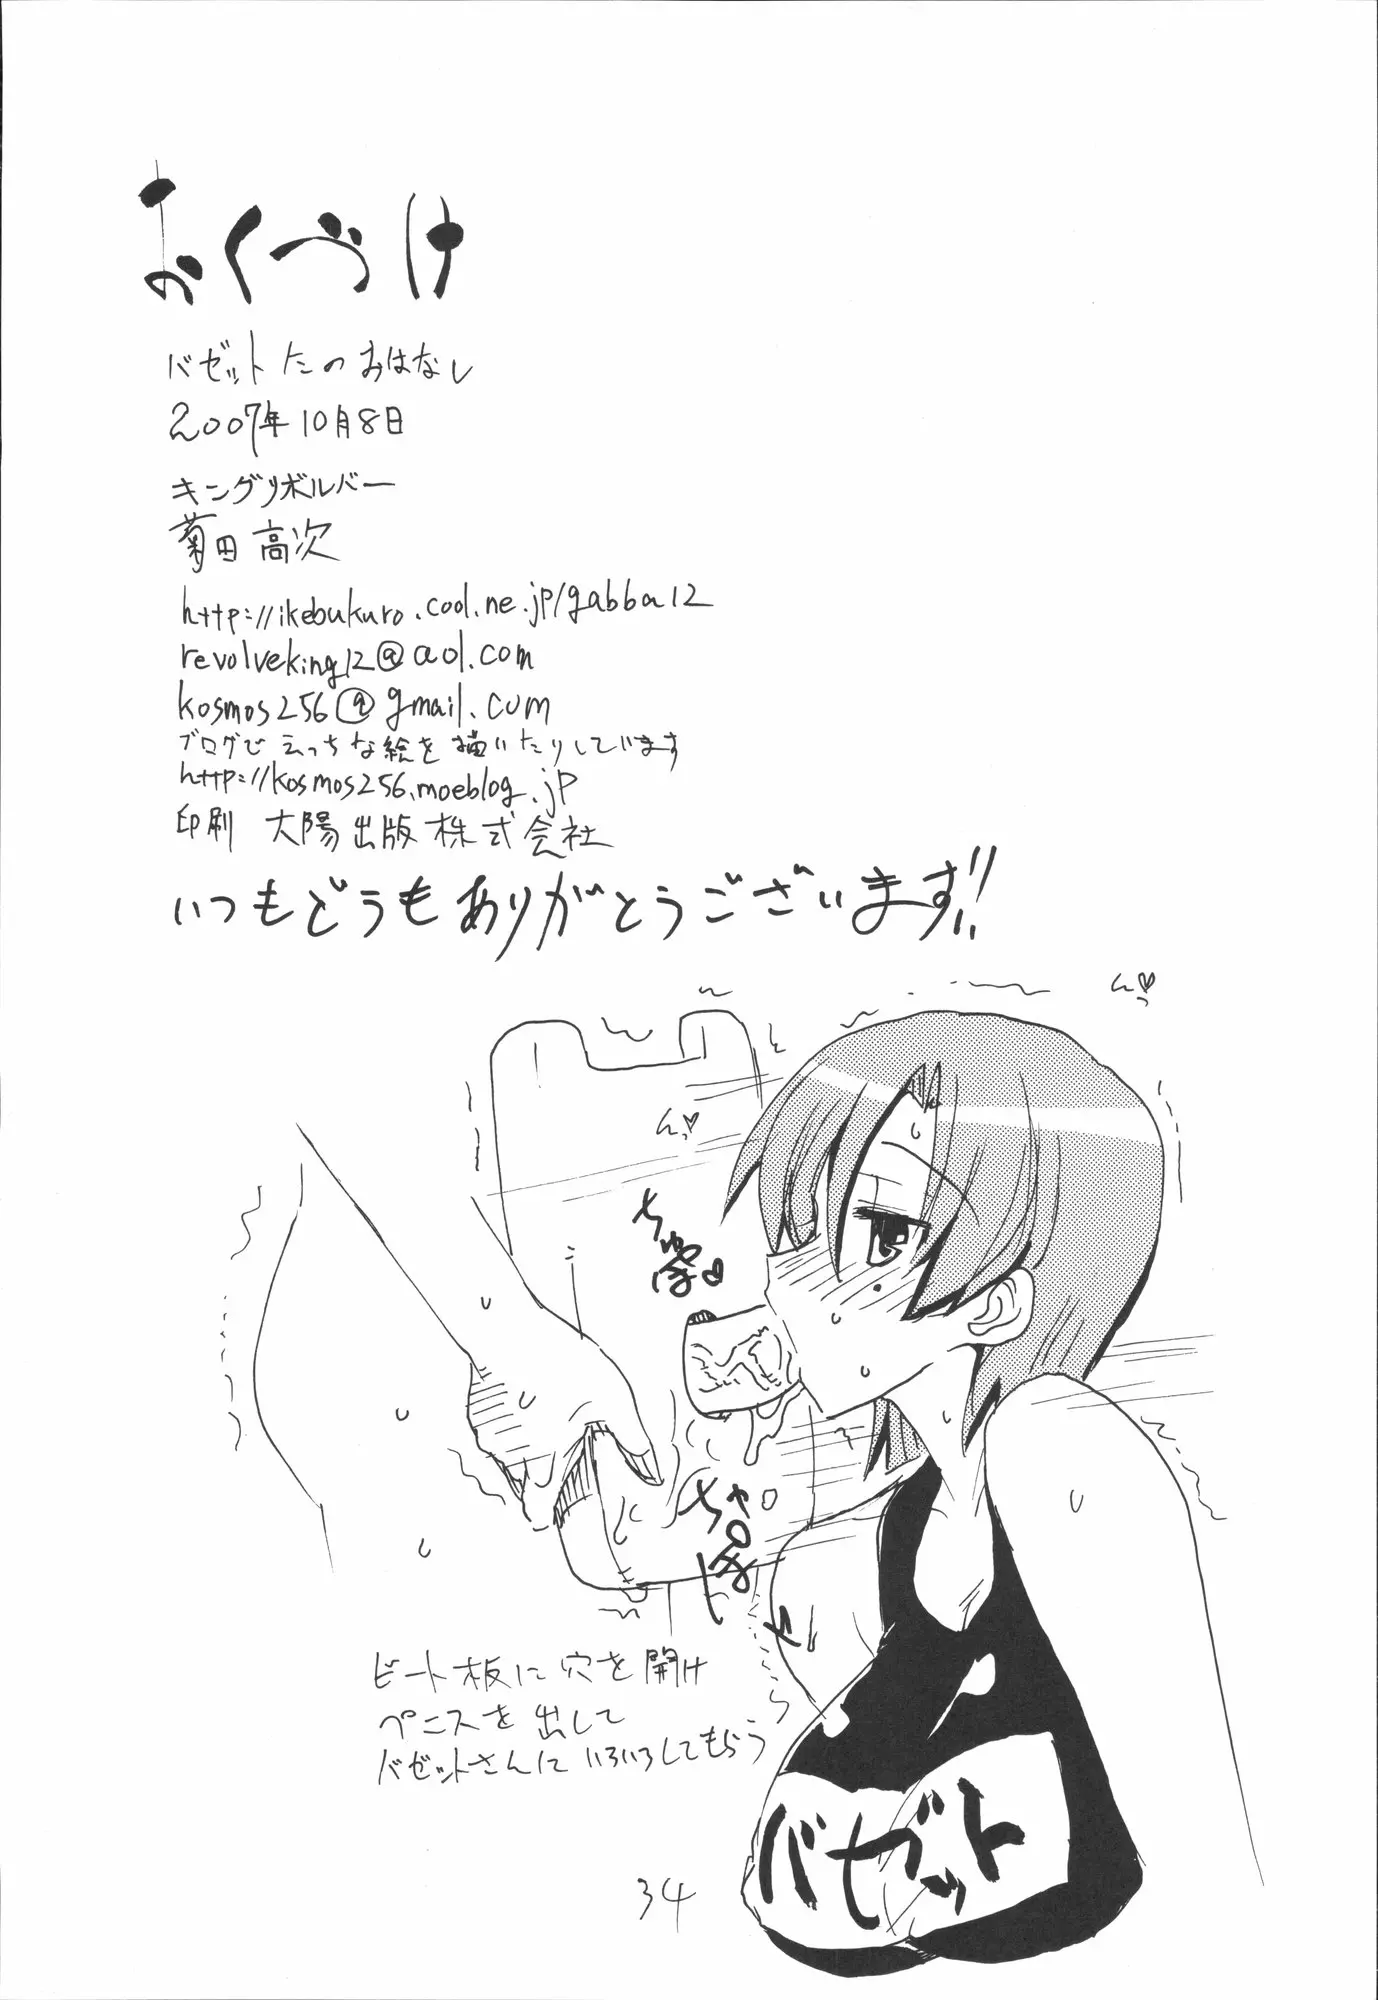 おくづけ
バゼットたのおはなし
2007年10月8日
キングリボルバー
菊田高次
http://ikebukuro.cool.ne.jp/gabba12
revolveking12@aol.com
kosmos256@gmail.com
ブログでえっちな絵を描いたりしています
http://kosmos256.moeblog.jp
印刷 大陽出版株式会社
いつもどうもありがとうございます!!
んっ♡
んっ♡
ちゅぽ♡
ちゅぽ
ビート板に穴を開け
ペニスを出して
バゼットさんにいろいろしてもらう
バゼット
34